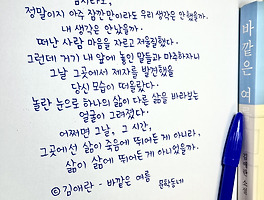 잠시라도,
정말이지 아주 잠깐만이라도 우리 생각은 안 했을까.
내 생각은 안 났을까.
떠난 사람 마음을 자르고 저울질했다.
그런데 거기 내 앞에 놓인 말들과 마주하자니
그날 그곳에서 제자를 발견했을
당신 모습이 떠올랐다.
놀란 눈으로 하나의 삶이 다른 삶을 바라보는
얼굴이 그려졌다.
어쩌면 그날, 그 시간,
그곳에선 삶이 죽음에 뛰어든 게 아니라,
삶이 삶에 뛰어든 게 아니었을까.
© 김애란 - 바깥은 여름 문학동네
바깥은 여
김애란 소설